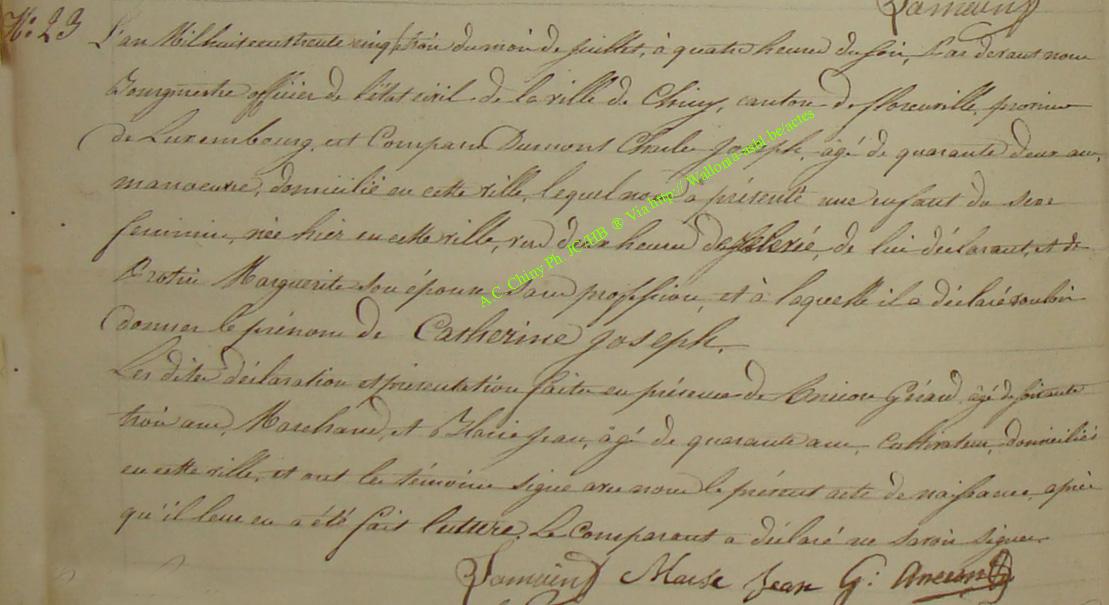 Lamain
N.o 23
L'an Mil huit cent trente cinq trois du mois de juillet, à quatre heures du soir, Par devant nous
Bourgmestre officier de l'état civil de la ville de Chiny, canton de florenville, province
de Luxembourg, est Comparu Dumont Charles Joseph, âgé de quarante deux ans,
manoeuvre, domicilié en cette ville, lequel nous a présenté une enfant du sexe
feminin, née hier en cette ville, vers deux heures de, de lui déclarant, et de
Marguerite son épouse sans profession, et à laquelle il a déclaré vouloir
donner le prénom de Catherine Joseph.
Les dites déclaration et présentation faites en présence de Gérard, âgé de soixante
trois ans, Marchand, et Jean, âgé de quarante ans, Cultivateur, domiciliés
en cette ville, et ont les témoins signé avec nous le présent acte de naissance, après
qu'il leur en a été fait lutture. Le Comparant a déclaré ne savoir signer.
Lamain Jean G. Ancion
A.C. Chiny Ph. JC/HB ® Via http://Wallonia-asbl.be/actes